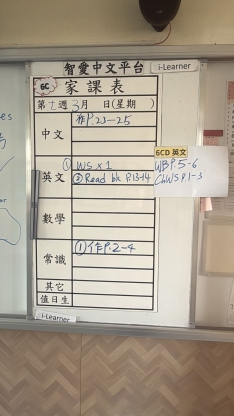 智愛中文平台
i-Learner
6C
家課表
第十週3月 日(星期 )
中文
作P.23-25
英文
① WS x 1
② Read bk P.13-14
6CD 英文
WB P.5-6
Ch WS P.1-3
數學
常識
① 作P.2-4
其它
值日生
i-Learner